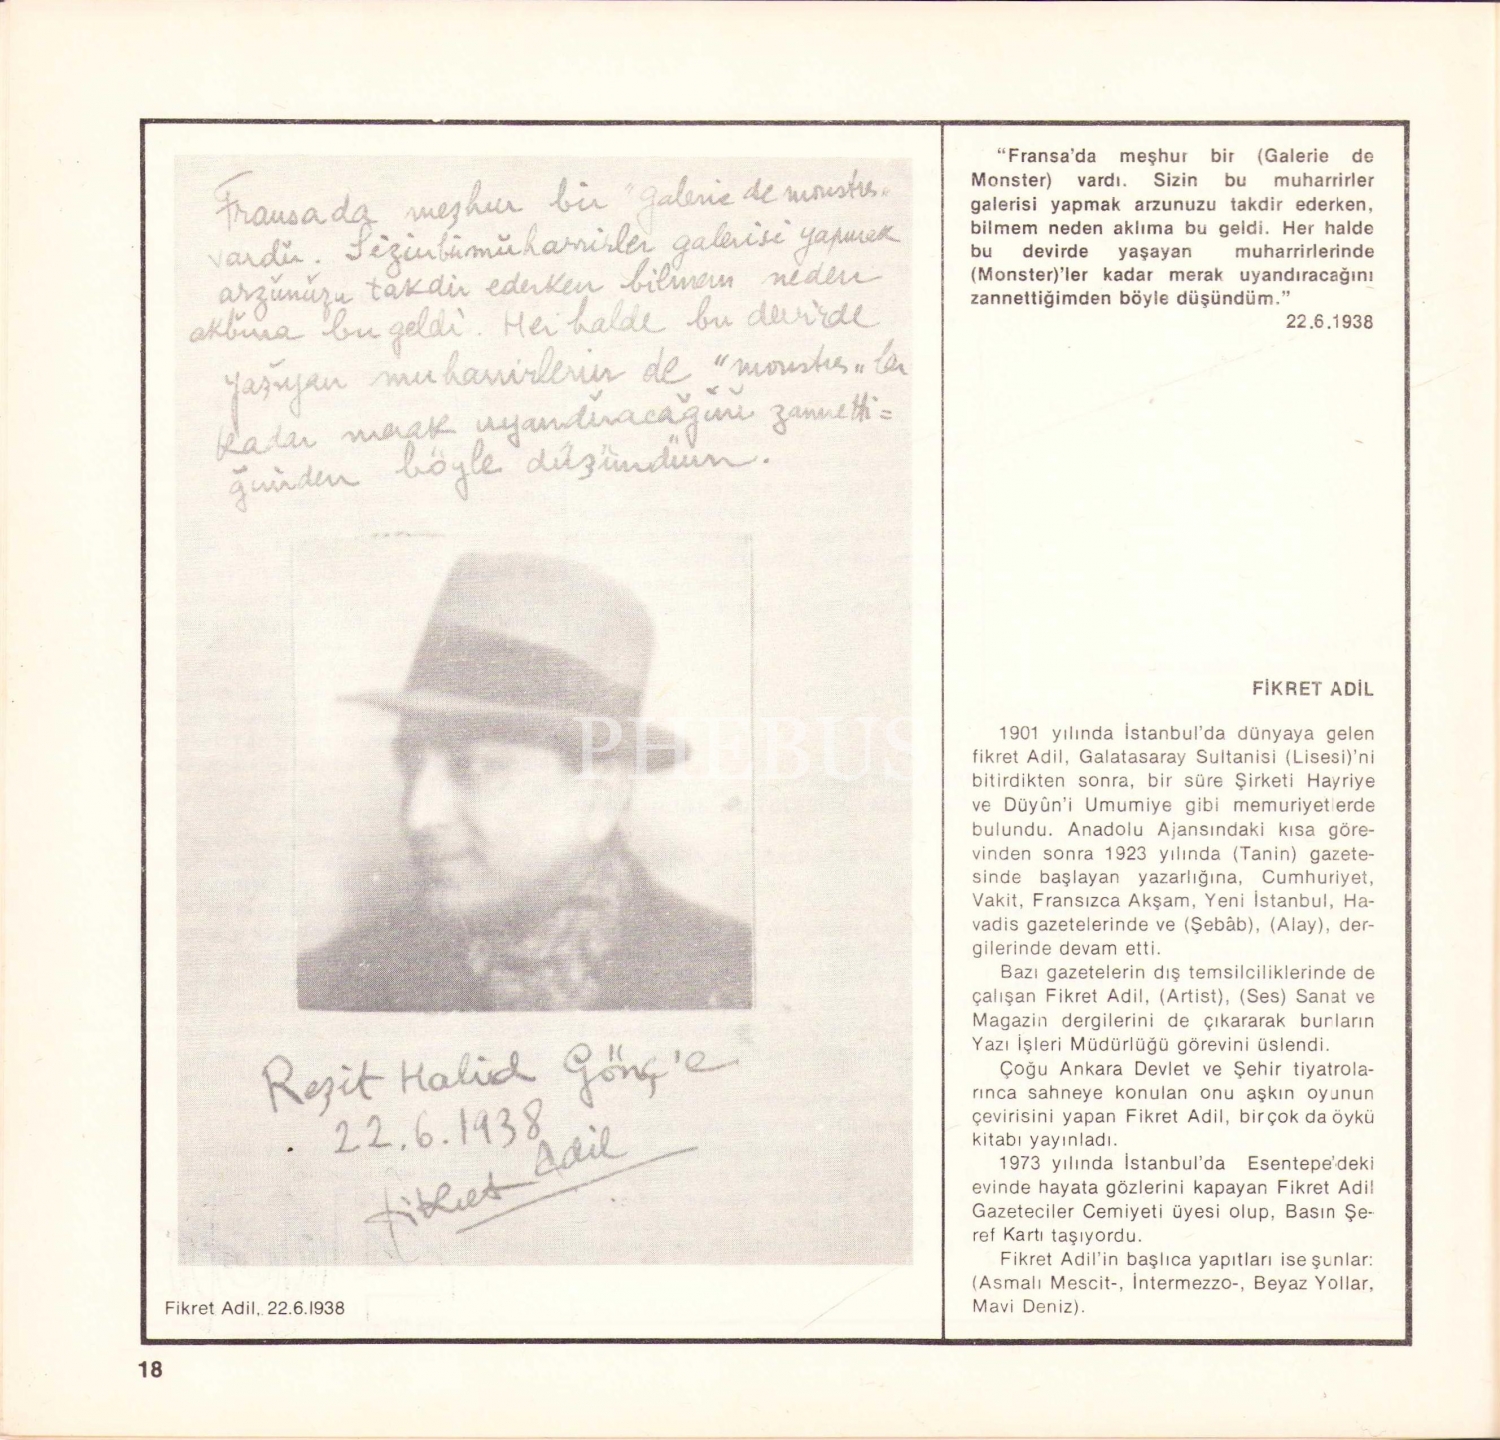 Fransada meşhur bir "galerie de monstres"
vardır. Sizin bu muharrirler galerisi yapmak
arzunuzu takdir ederken bilmem neden
aklıma bu geldi. Her halde bu devirde
yaşıyan muharrirlerin de "monstres" lar
kadar merak uyandıracağını zannetti=
ğimden böyle düşündüm.
PHEBUS
Reşit Halid Gönç'e
22.6.1938
Fikret Adil
Fikret Adil, 22.6.1938
18
"Fransa'da meşhur bir (Galerie de
Monster) vardı. Sizin bu muharrirler
galerisi yapmak arzunuzu takdir ederken,
bilmem neden aklıma bu geldi. Her halde
bu devirde yaşayan muharrirlerinde
(Monster)'ler kadar merak uyandıracağını
zannettiğimden böyle düşündüm."
22.6.1938
FİKRET ADİL
1901 yılında İstanbul'da dünyaya gelen
fikret Adil, Galatasaray Sultanisi (Lisesi)'ni
bitirdikten sonra, bir süre Şirketi Hayriye
ve Düyûn'i Umumiye gibi memuriyetlerde
bulundu. Anadolu Ajansındaki kısa göre-
vinden sonra 1923 yılında (Tanin) gazete-
sinde başlayan yazarlığına, Cumhuriyet,
Vakit, Fransızca Akşam, Yeni İstanbul, Ha-
vadis gazetelerinde ve (Şebâb), (Alay), der-
gilerinde devam etti.
Bazı gazetelerin dış temsilciliklerinde de
çalışan Fikret Adil, (Artist), (Ses) Sanat ve
Magazin dergilerini de çıkararak bunların
Yazı İşleri Müdürlüğü görevini üslendi.
Çoğu Ankara Devlet ve Şehir tiyatrola-
rınca sahneye konulan onu aşkın oyunun
çevirisini yapan Fikret Adil, birçok da öykü
kitabı yayınladı.
1973 yılında İstanbul'da Esentepe'deki
evinde hayata gözlerini kapayan Fikret Adil
Gazeteciler Cemiyeti üyesi olup, Basın Şe-
ref Kartı taşıyordu.
Fikret Adil'in başlıca yapıtları ise şunlar:
(Asmalı Mescit-, İntermezzo-, Beyaz Yollar,
Mavi Deniz).